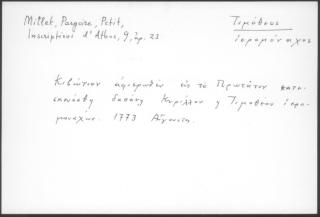 Millet, Pargoire, Petit,
Inscriptions d'Athos, 9, ἀρ. 23
Τιμόθεος
ἱερομόναχος
Κιβώτιον ἀφιερωθὲν εἰς τὸ Πρωτᾶτον κατε-
σκευάσθη δαπάνῃ Κυρίλλου ἢ Τιμοθέου ἱερο-
μονάχων. 1773 Αὔγουστ.